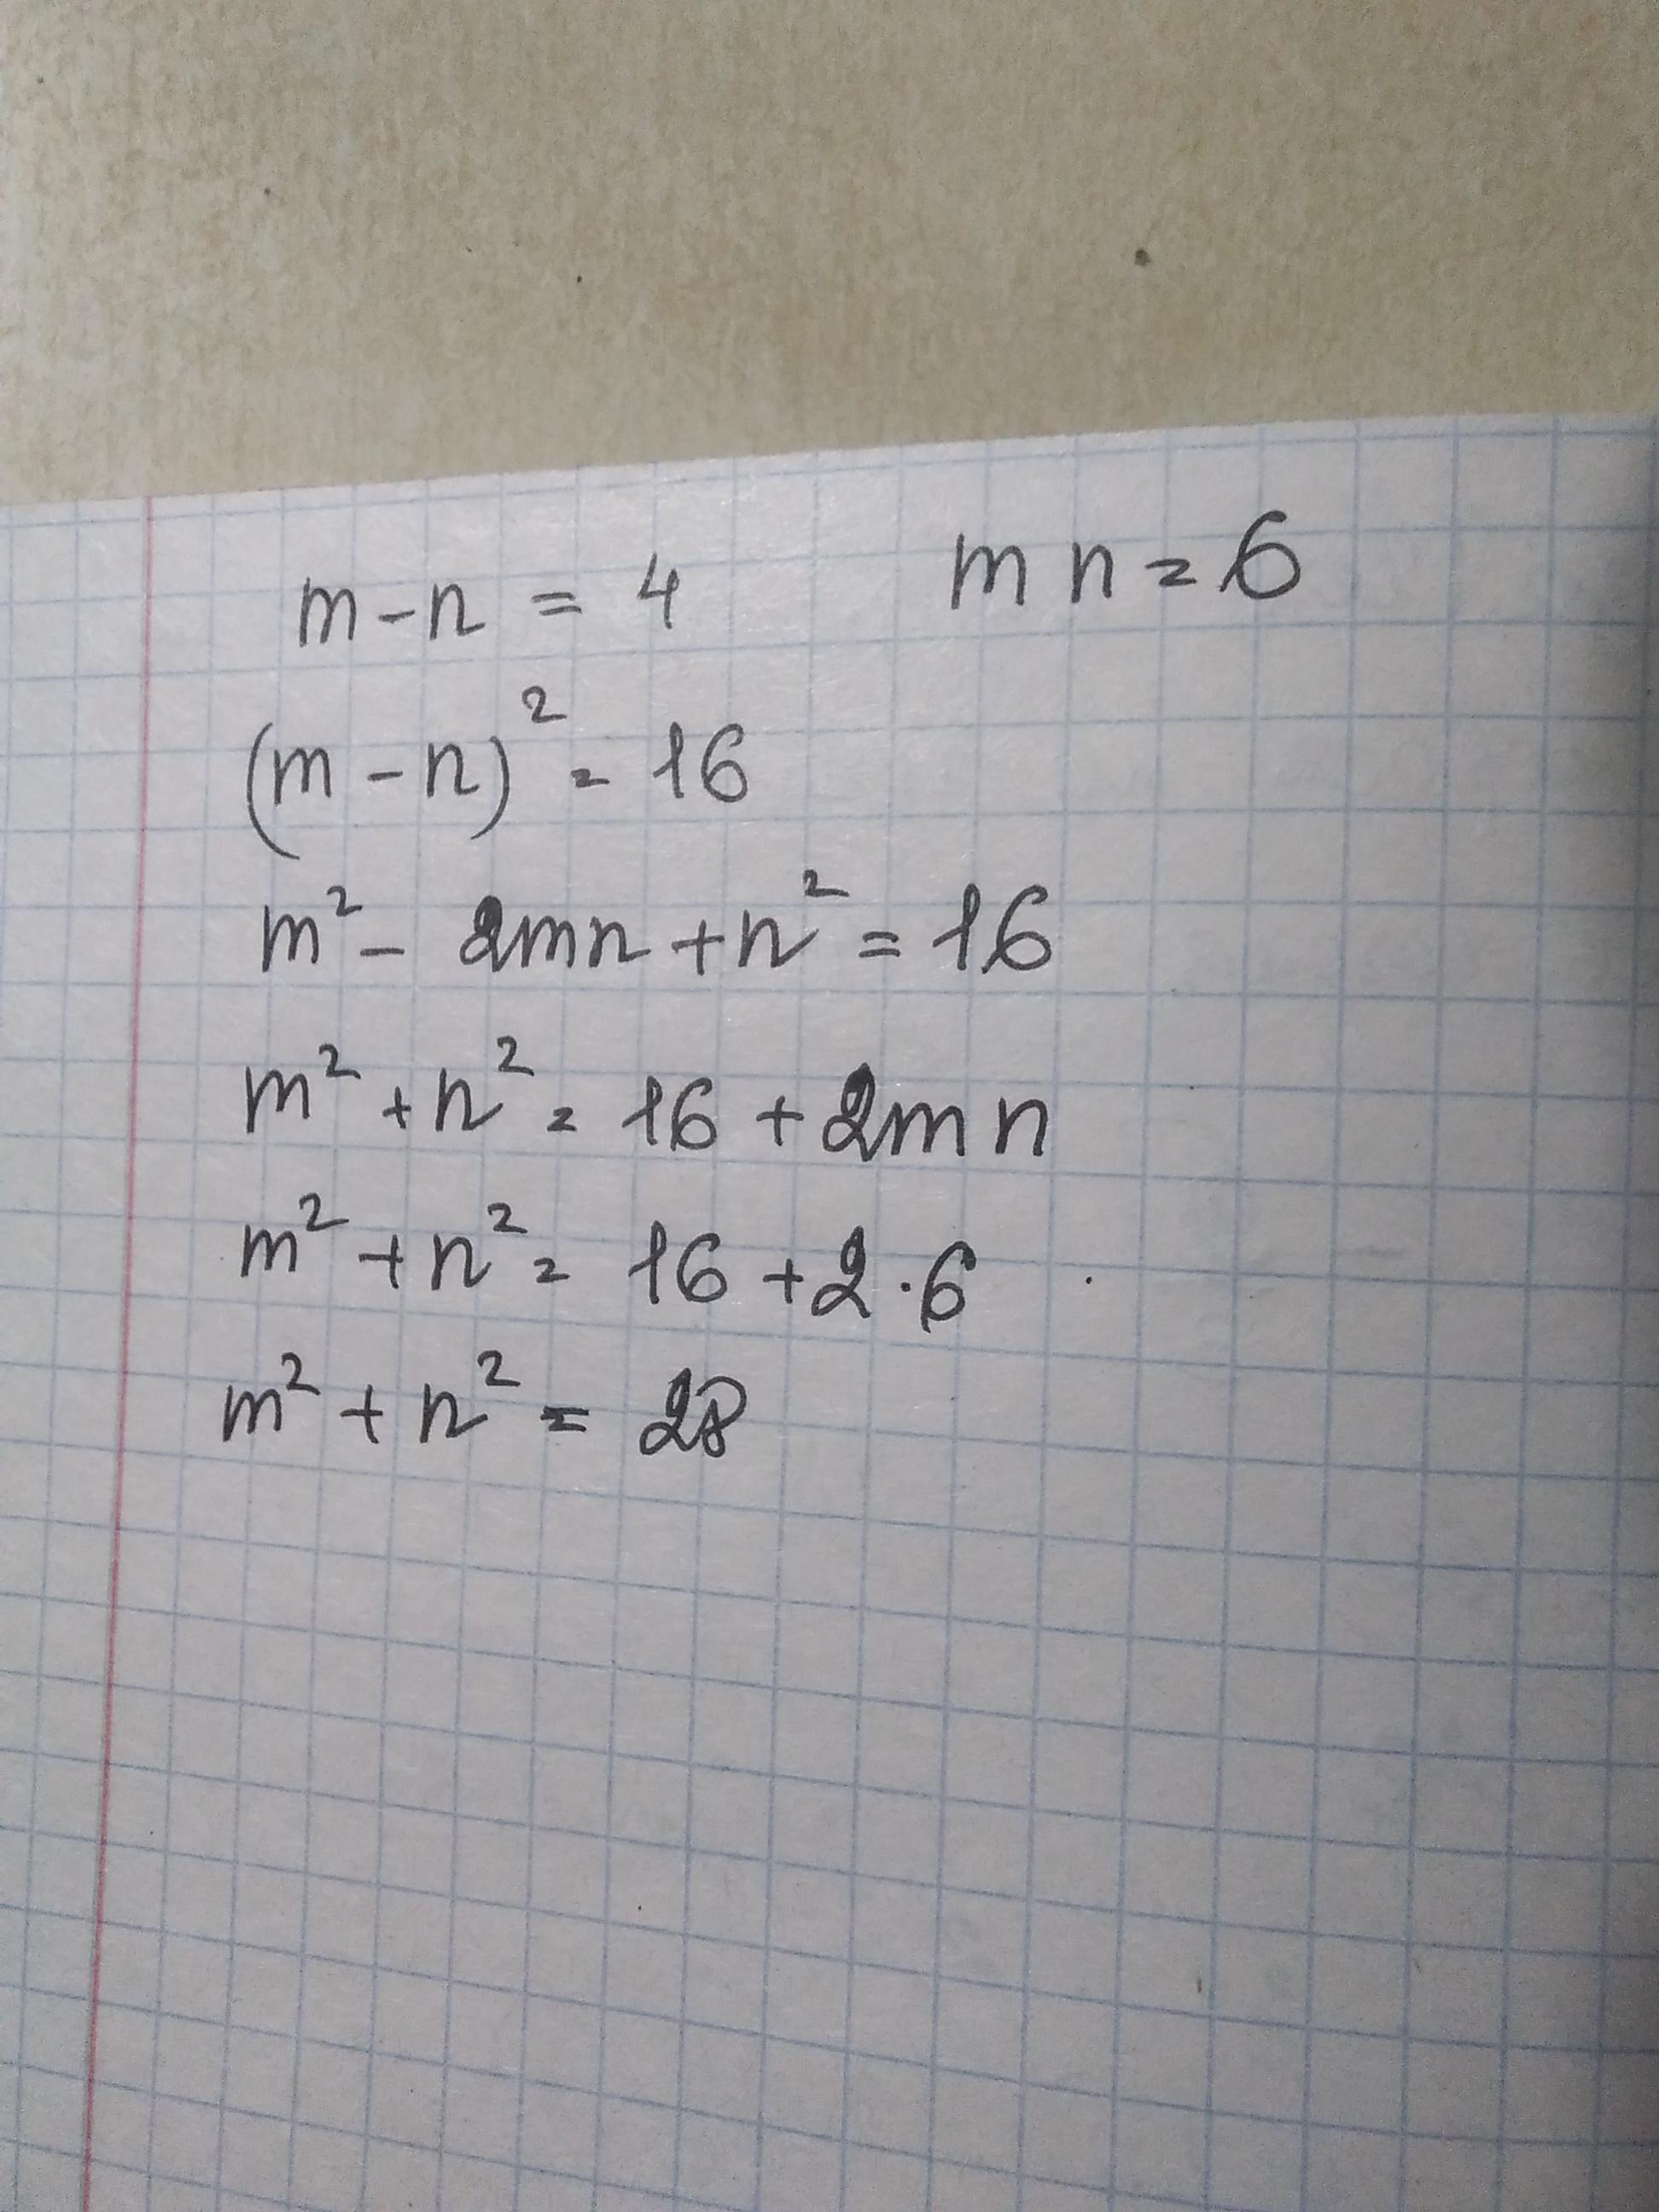 m - n = 4 mn = 6
(m - n)² = 16
m² - 2mn + n² = 16
m² + n² = 16 + 2mn
m² + n² = 16 + 2 · 6
m² + n² = 28